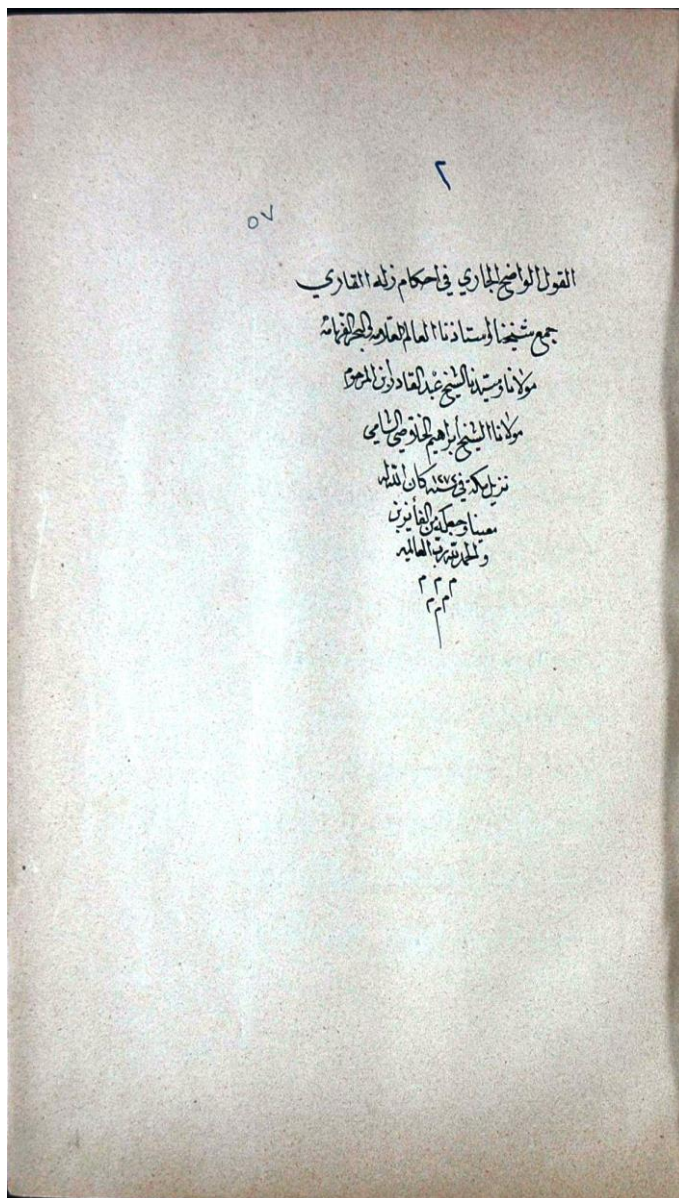 ٢
٥٧
القول الواضح الجاري في احكام زلة القاري
جمع شيخنا واستاذنا العالم العلامه والبحر الفهامه
مولانا وسيدنا الشيخ عبد القادر ابن المرحوم
مولانا الشيخ ابراهيم الشامي
نزيل مكة في سنه ١٢٧٤ كان الله له
معينا وجعله من الفائزين
والحمد لله رب العالمين
م م م
م م م